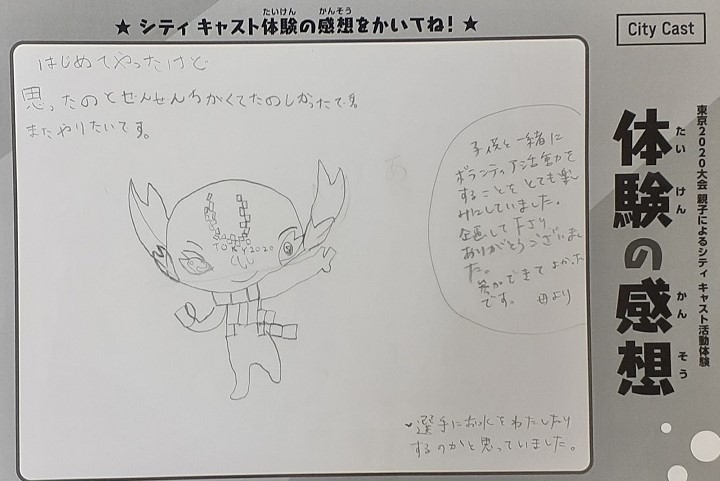 ★ シティ キャスト体験の感想をかいてね！ ★
たいけん かんそう
City Cast
東京2020大会 親子によるシティ キャスト活動体験
体験の感想
たい けん かん そう
はじめてやったけど
思ったのとぜんぜんちがくてたのしかったです。
またやりたいです。
TOKYO 2020
子供と一緒に
ボランティア活動を
することをとても楽し
みにしていました。
企画して下さり
ありがとうございまし
た。
ができてよかった
です。 母より
選手にお水をわたしたり
するのかと思っていました。